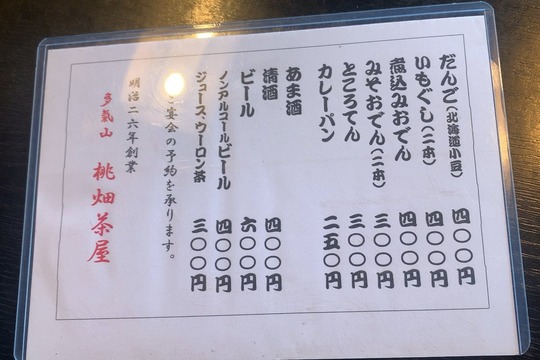 だんご(北海道小豆) 四〇〇円
いもぐし(二本) 四〇〇円
煮込みおでん 四〇〇円
みそおでん(二本) 三〇〇円
ところてん 三〇〇円
カレーパン 二五〇円
あま酒
清酒 四〇〇円
ビール 六〇〇円
ノンアルコールビール 四〇〇円
ジュース、ウーロン茶 三〇〇円
宴会の予約を承ります。
明治二六年創業
多氣山 桃畑茶屋